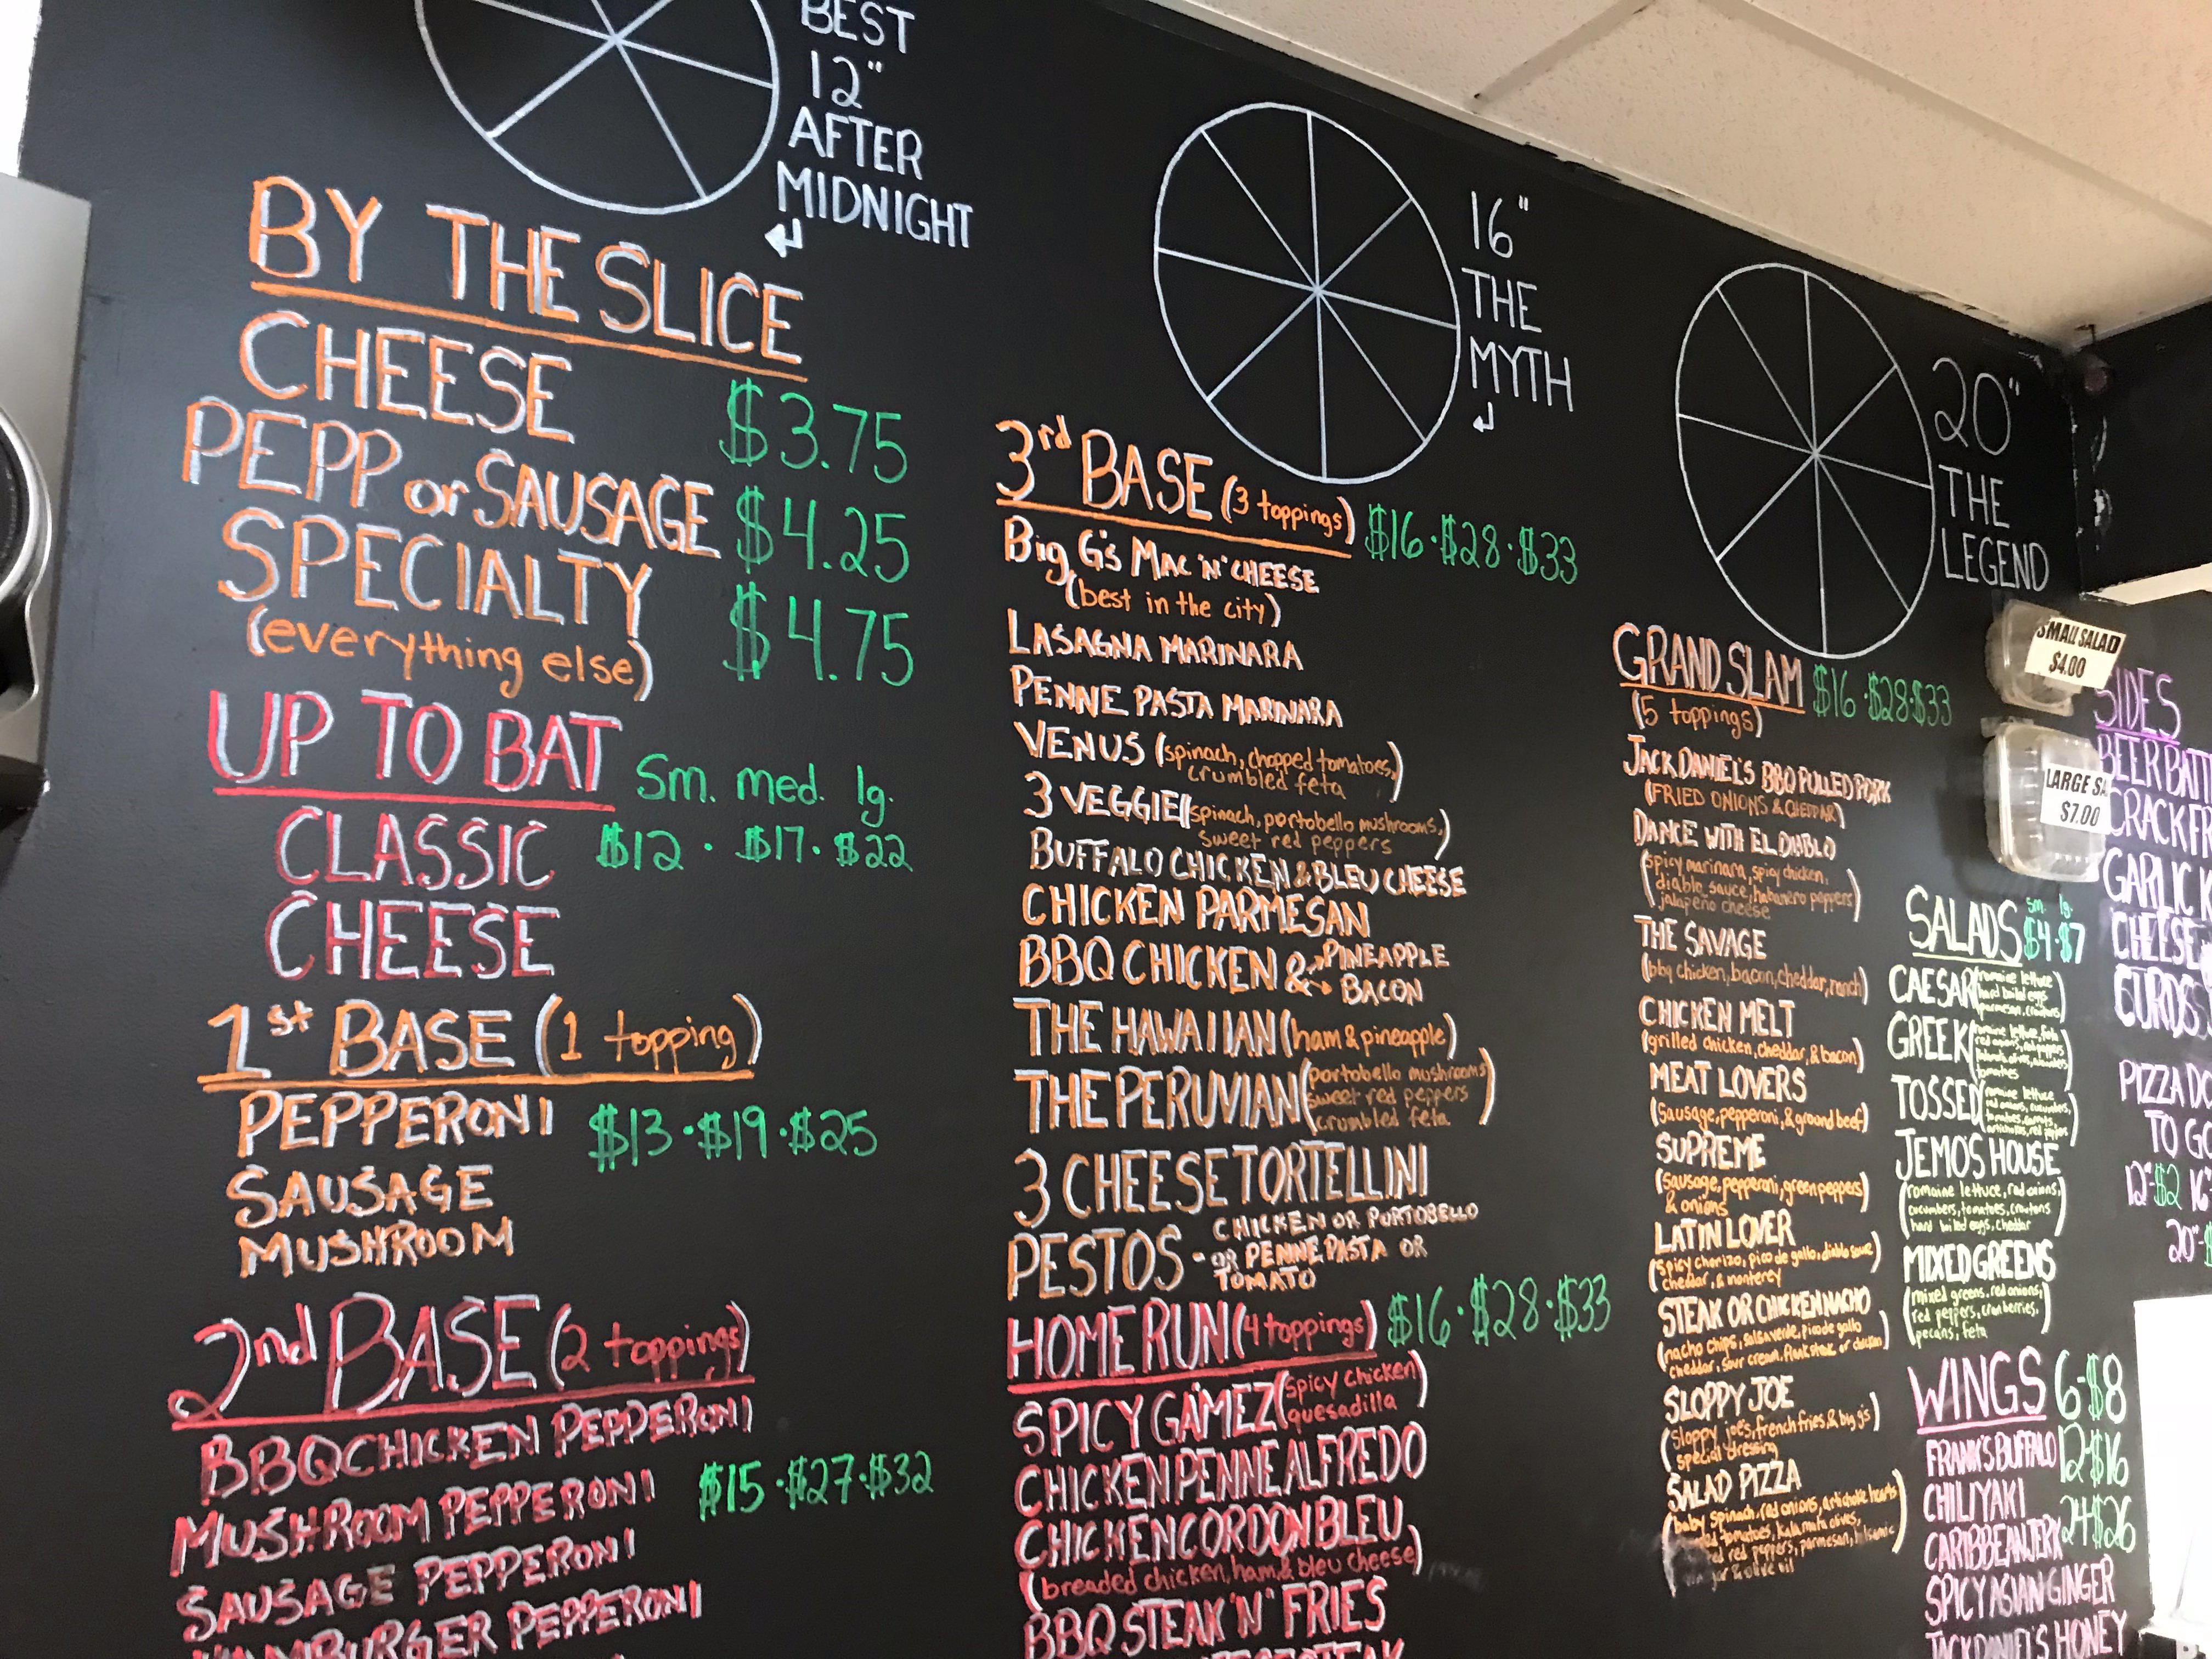 BEST
12"
AFTER
MIDNIGHT
BY THE SLICE
CHEESE $3.75
PEPP or SAUSAGE $4.25
SPECIALTY $4.75
(everything else)
UP TO BAT Sm. med. lg.
CLASSIC $12 · $17 · $22
CHEESE
1st BASE (1 topping)
PEPPERONI $13 · $19 · $25
SAUSAGE
MUSHROOM
2nd BASE (2 toppings)
BBQ CHICKEN PEPPERONI
MUSHROOM PEPPERONI $15 · $27 · $32
SAUSAGE PEPPERONI
HAMBURGER PEPPERONI
16"
THE
MYTH
3rd BASE (3 toppings) $16 · $28 · $33
Big G's MAC 'N' CHEESE
(best in the city)
LASAGNA MARINARA
PENNE PASTA MARINARA
VENUS (spinach, chopped tomatoes,
crumbled feta)
3 VEGGIE (spinach, portobello mushrooms,
sweet red peppers)
BUFFALO CHICKEN & BLEU CHEESE
CHICKEN PARMESAN
BBQ CHICKEN & PINEAPPLE
BACON
THE HAWAIIAN (ham & pineapple)
THE PERUVIAN (portobello mushrooms
sweet red peppers
crumbled feta)
3 CHEESE TORTELLINI
PESTOS - CHICKEN OR PORTOBELLO
OR PENNE PASTA OR
TOMATO
HOME RUN (4 toppings) $16 · $28 · $33
SPICY GAMEZ (spicy chicken
quesadilla)
CHICKEN PENNE ALFREDO
CHICKEN CORDON BLEU
(breaded chicken, ham, & bleu cheese)
BBQ STEAK 'N' FRIES
20"
THE
LEGEND
GRAND SLAM $16 · $28 · $33
(5 toppings)
JACK DANIEL'S BBQ PULLED PORK
(FRIED ONIONS & CHEDDAR)
DANCE WITH EL DIABLO
(spicy marinara, spicy chicken,
diablo sauce, habanero peppers
jalapeño cheese)
THE SAVAGE
(bbq chicken, bacon, cheddar, ranch)
CHICKEN MELT
(grilled chicken, cheddar, & bacon)
MEAT LOVERS
(sausage, pepperoni, & ground beef)
SUPREME
(sausage, pepperoni, green peppers
& onions)
LATIN LOVER
(spicy chorizo, pico de gallo, diablo sauce
cheddar, & monterey)
STEAK OR CHICKEN NACHO
(nacho chips, salsa verde, pico de gallo
cheddar, sour cream, flank steak or chicken)
SLOPPY JOE
(sloppy joe's, french fries & big g's
special dressing)
SALAD PIZZA
(baby spinach, red onions, artichoke hearts
tomatoes, kalamata olives,
red peppers, parmesan, balsamic
& olive oil
SMALL SALAD
$4.00
LARGE
$7.00
SALADS Sm. lg.
$4 · $7
CAESAR (romaine lettuce
hard boiled eggs
parmesan, croutons)
GREEK (romaine lettuce, feta
red onions, red peppers
tomatoes)
TOSSED (romaine lettuce
red onions, cucumbers,
tomatoes, carrots,
artichokes, red peppers)
JEMOS HOUSE
(romaine lettuce, red onions,
cucumbers, tomatoes, croutons
hard boiled eggs, cheddar)
MIXED GREENS
(mixed greens, red onions,
red peppers, cranberries,
pecans, feta)
WINGS 6-$8
FRANK'S BUFFALO 12-$16
CHILIYAKI
CARIBBEAN JERK 24-$26
SPICY ASIAN GINGER
JACK DANIEL'S HONEY
SIDES
BEER
CRACK
GARLIC
CHEESE
CURDS
PIZZA
TO
12"-$2 16"
20"-$